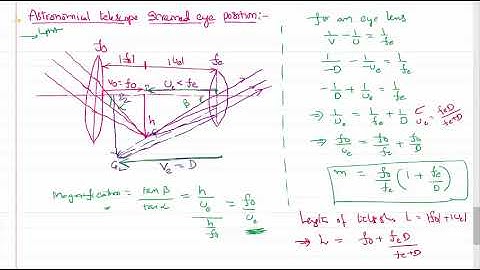 Astronomical telescope Strained eye position:-
Light
fo
|fo|
|ue|
fe
vo = fo
Ue < fe
α
β
h
Ve = D
Magnification = tan β / tan α = (h/ue) / (h/fo) = fo/ue
for an eye lens
1/V - 1/U = 1/f
1/-D - 1/-ue = 1/fe
-1/D + 1/ue = 1/fe
⇒ 1/ue = 1/fe + 1/D
ue = feD/fe+D
⇒ fo/ue = fo/fe + fo/D
m = fo/fe (1 + fe/D)
Length of telescope L = |fo| + |ue|
⇒ L = fo + feD/fe+D